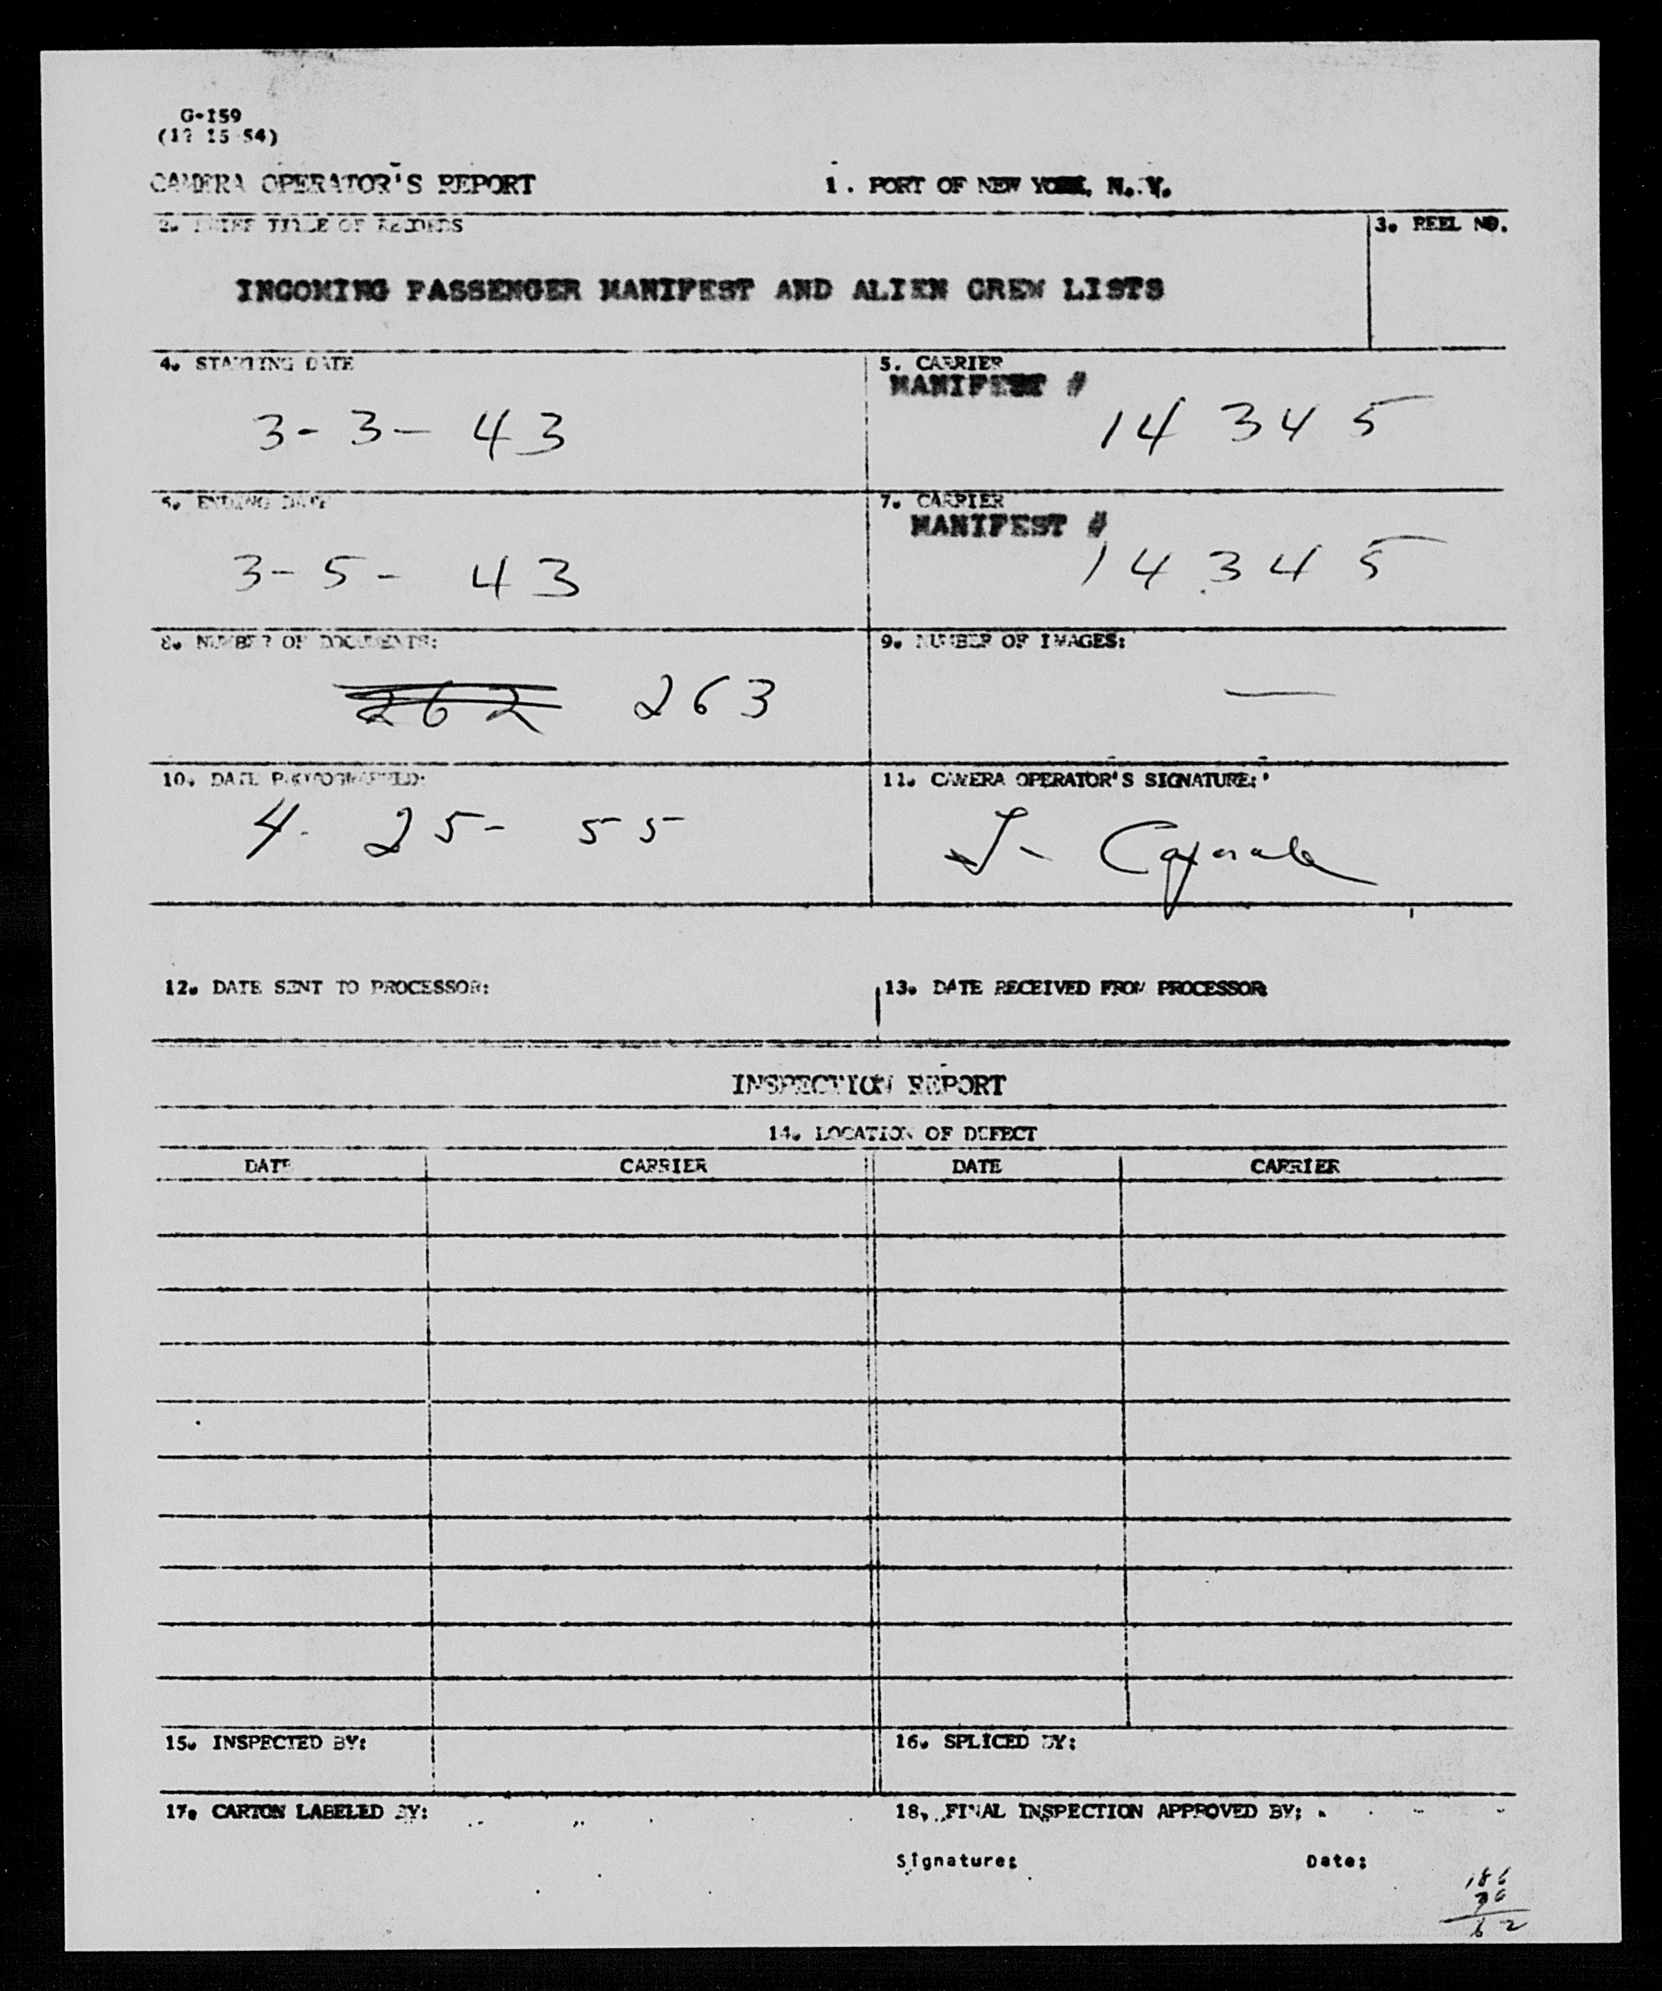 G-159
(12 15 54)
CAMERA OPERATOR'S REPORT
1. PORT OF NEW YORK, N. Y.
2. BRIEF TITLE OF RECORDS
3. REEL NO.
INCOMING PASSENGER MANIFEST AND ALIEN CREW LISTS
4. STARTING DATE
3-3-43
5. CARRIER
MANIFEST #
14345
6. ENDING DATE
3-5-43
7. CARRIER
MANIFEST #
14345
8. NUMBER OF DOCUMENTS:
262 263
9. NUMBER OF IMAGES:
—
10. DATE PHOTOGRAPHED:
4-25-55
11. CAMERA OPERATOR'S SIGNATURE:
12. DATE SENT TO PROCESSOR:
13. DATE RECEIVED FROM PROCESSOR
INSPECTION REPORT
14. LOCATION OF DEFECT
DATE CARRIER DATE CARRIER
15. INSPECTED BY:
16. SPLICED BY:
17. CARTON LABELED BY:
18. FINAL INSPECTION APPROVED BY:
Signature: Date:
186